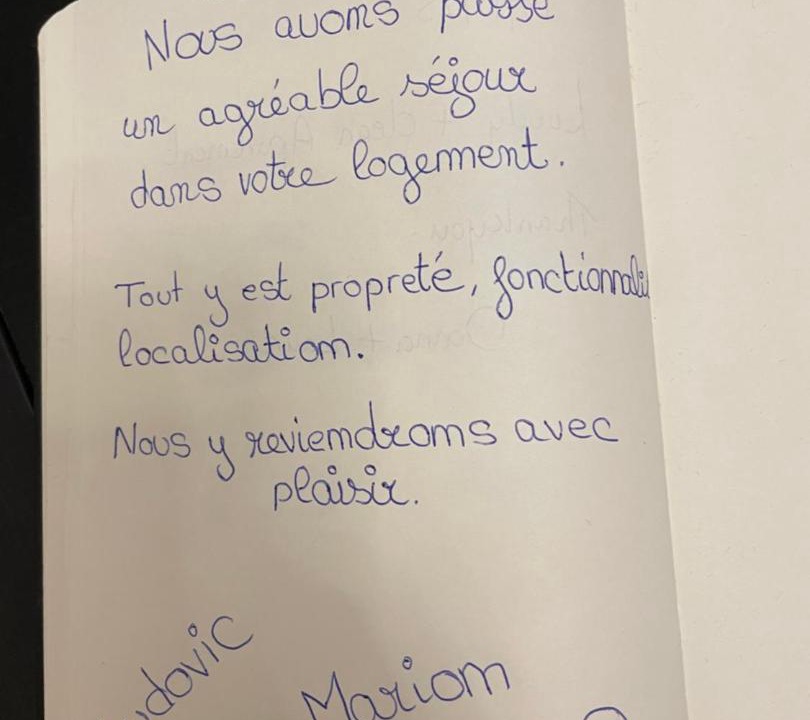 Nous avons passé
un agréable séjour
dans votre logement.
Tout y est propreté, fonctionnali
localisation.
Nous y reviendrons avec
plaisir.
dovic
Marion